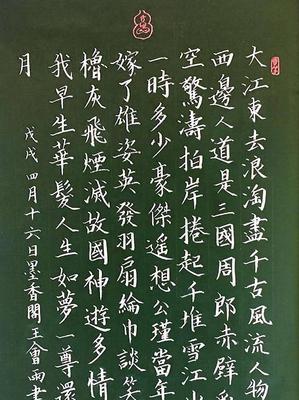 大江東去浪淘盡千古風流人物
西邊人道是三國周郎赤壁
空驚濤拍岸捲起千堆雪江
一時多少豪傑遙想公瑾當年
嫁了雄姿英發羽扇綸巾談笑
櫓灰飛煙滅故國神遊多情
我早生華髮人生如夢一尊還
月
戊戌四月十六日墨香閣王會雨書